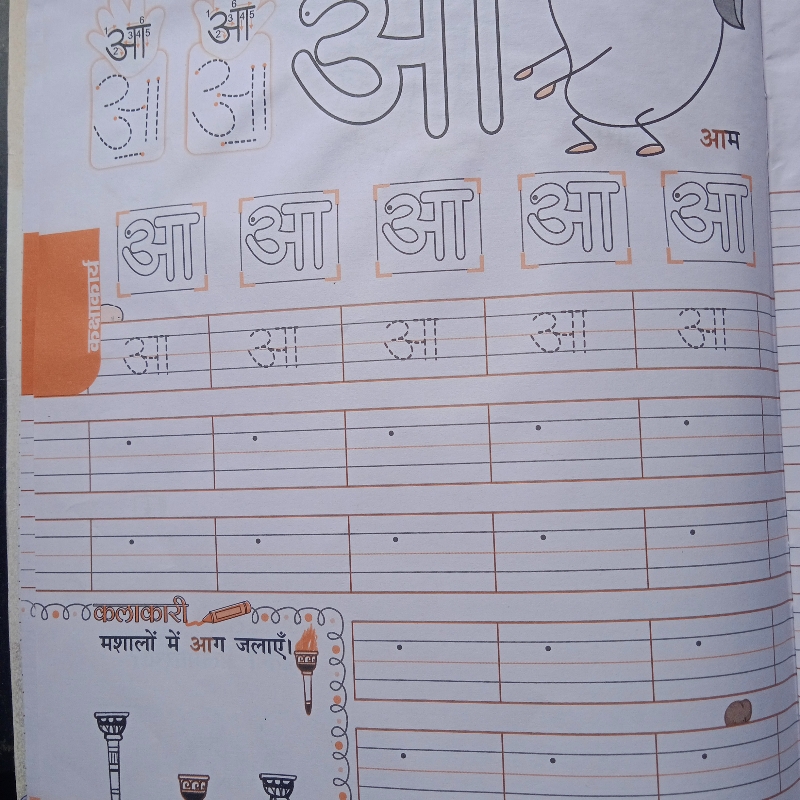 आ आ आ
1 2 3 4 5 6 1 2 3 4 5 6
आ आ
आम
आ आ आ आ आ
कक्षाकार्य
आ आ आ आ आ
कलाकारी
मशालों में आग जलाएँ।